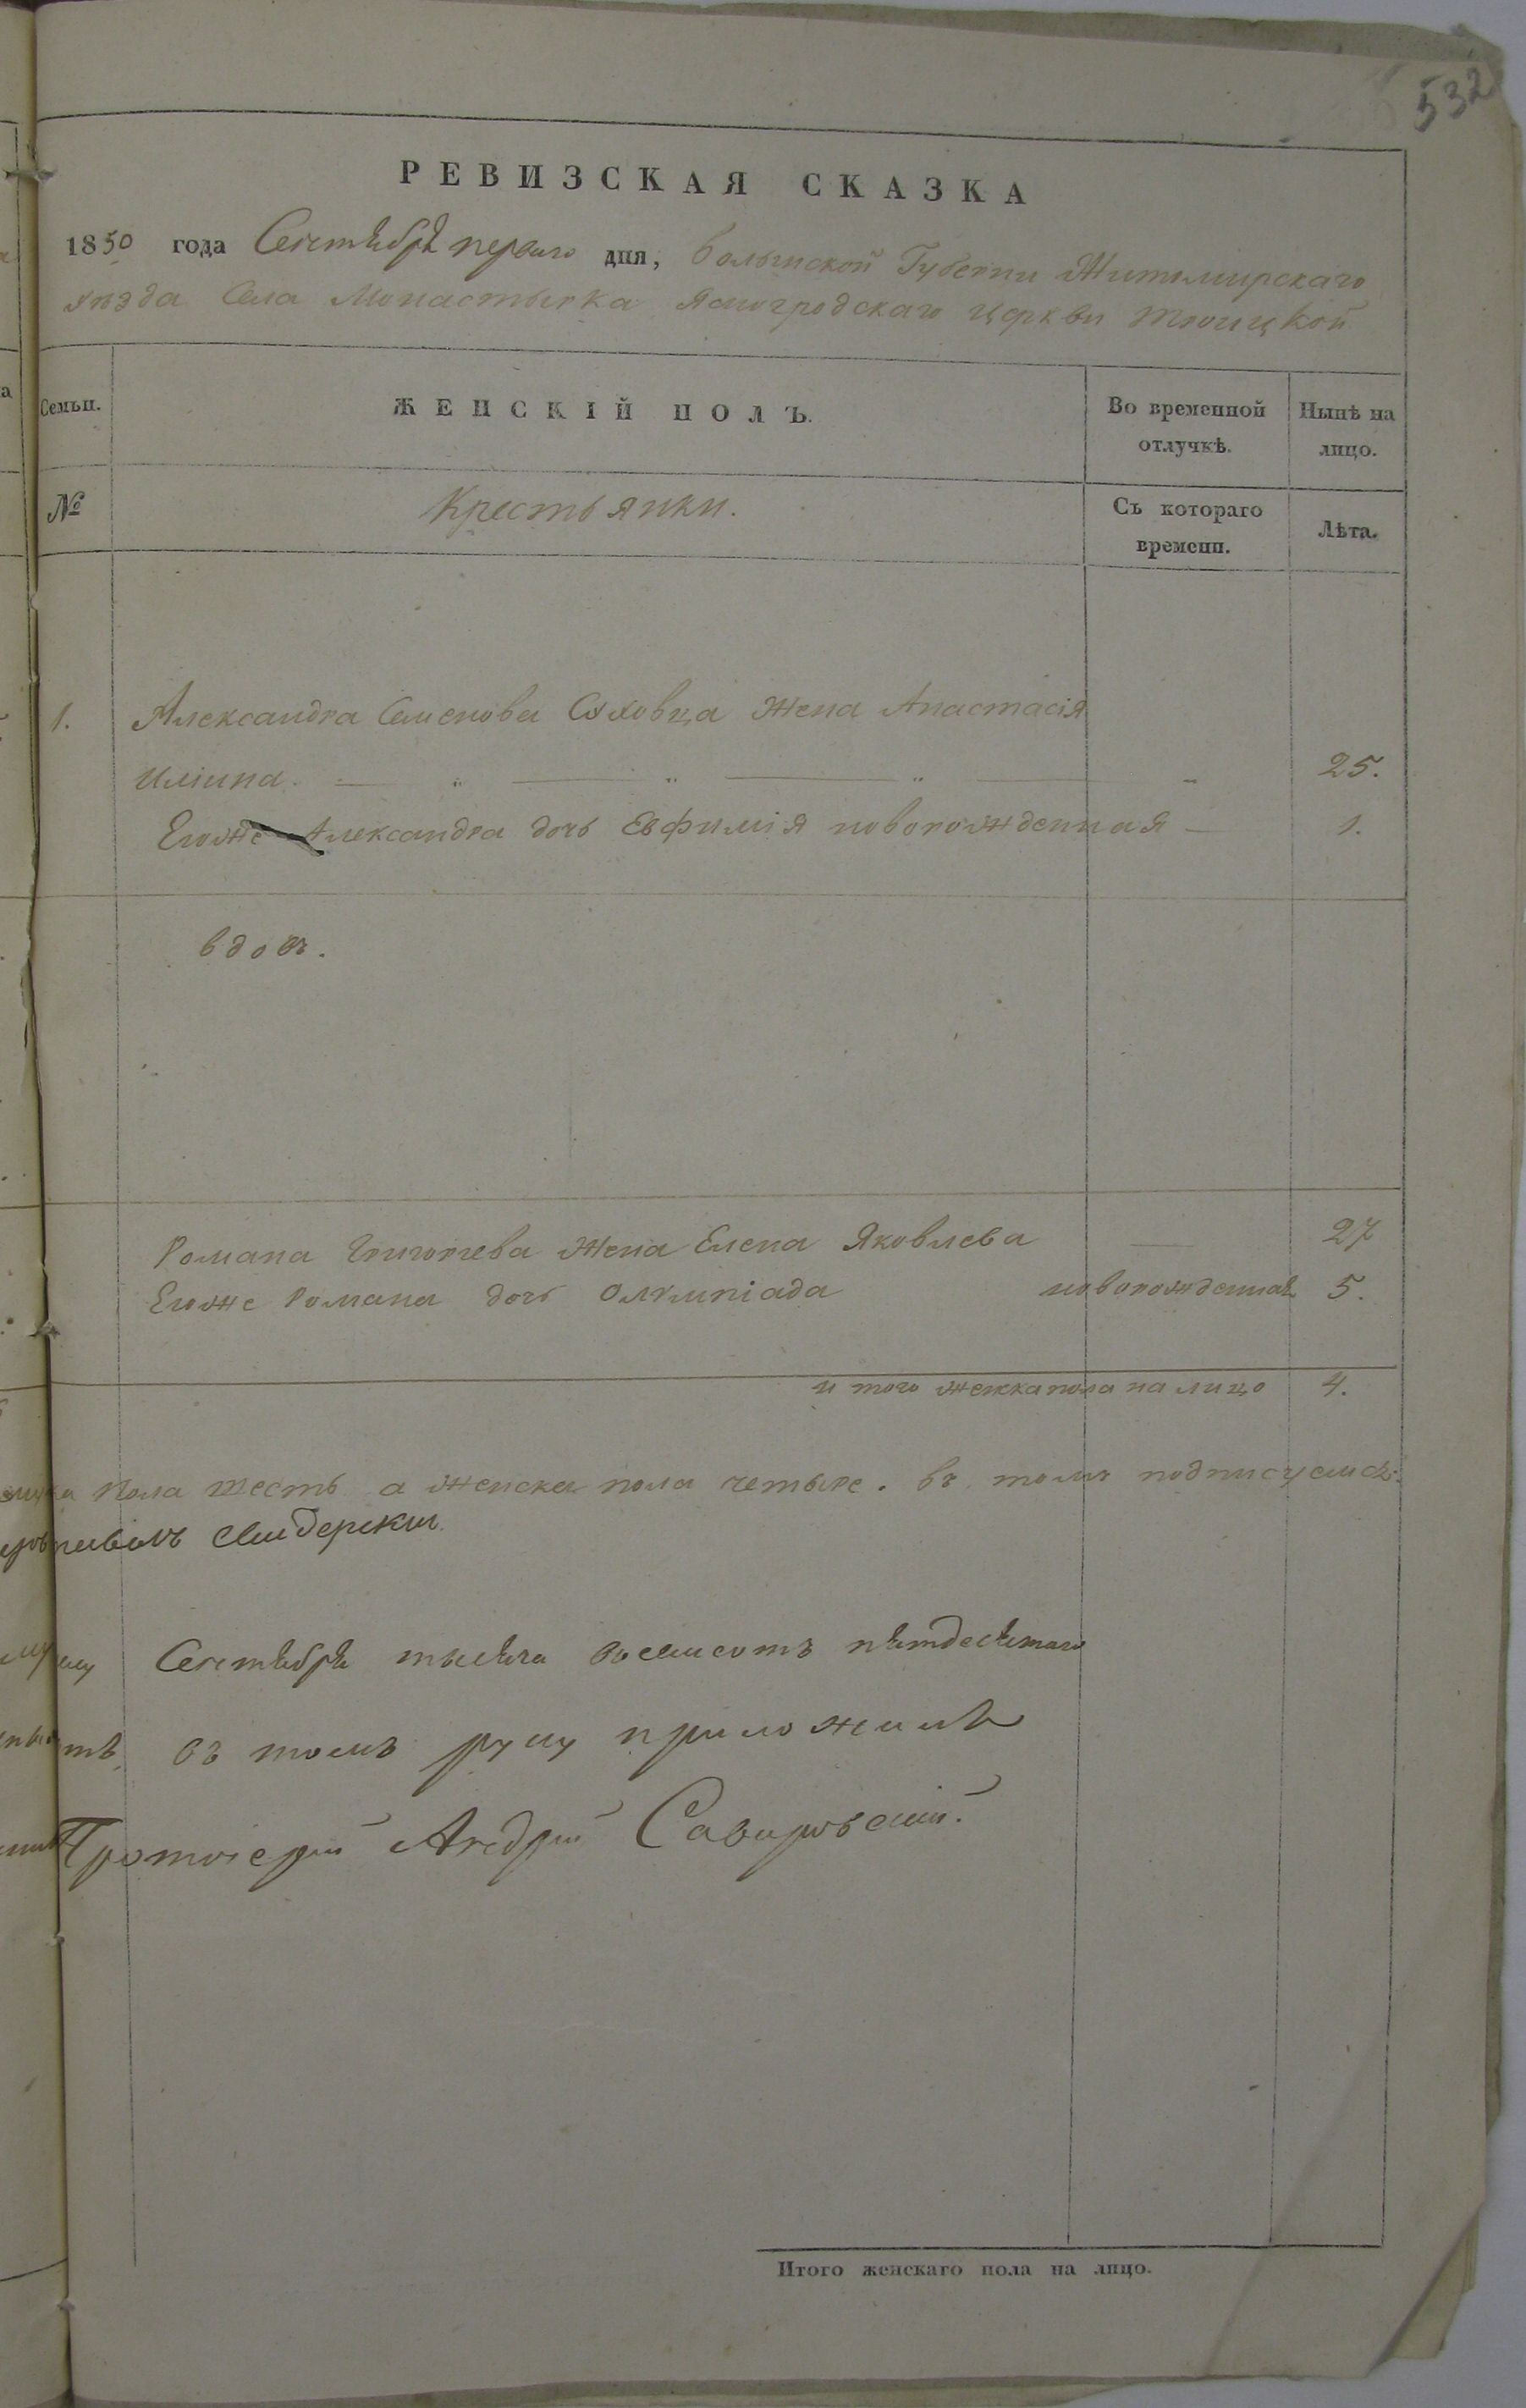 532
РЕВИЗСКАЯ СКАЗКА
1850 года Сентября перваго дня, Волынской Губерни Житомирскаго
уѣзда Села Монастырка Ясногродскаго церкви Троицкой
Семьи. ЖЕНСКІЙ ПОЛЪ. Во временной отлучкѣ. Нынѣ на лицо.
№ Крестьянки. Съ котораго времени. Лѣта.
1. Александра Семенова жена Анастасія
Иліина. — „ — „ — „ — „ 25.
Егоже Александра дочь Евфимія новорожденная — 1.
вдовъ.
Романа Григориева жена Елена Яковлева — 27
Егоже Романа дочь Олимпіада новорожденная 5.
и того женска пола на лицо 4.
пола шесть а женска пола четыре. въ томъ подписуемся.
Сентября тысяча восемсотъ пятдесятаго
въ томъ руку приложилъ
Протоіерей Андрей
Итого женскаго пола на лицо.